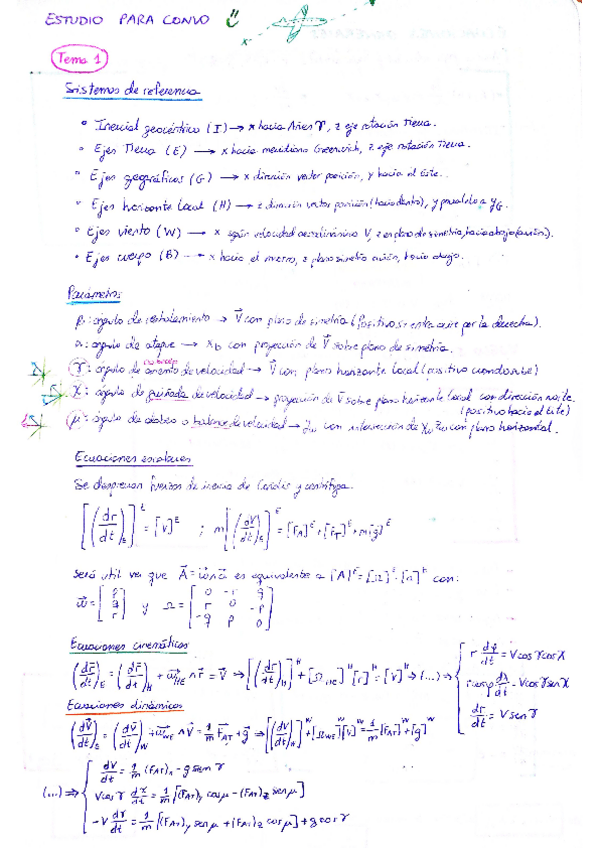 ESTUDIO PARA CONVO
Tema 1
Sistemas de referencia
• Inercial geocéntrico (I) → x hacia Aries ϒ, z eje rotación Tierra.
• Ejes Tierra (E) → x hacia meridiano Greenwich, z eje rotación Tierra.
• Ejes geográficos (G) → x dirección vector posición, y hacia el este.
• Ejes horizonte local (H) → z dirección vector posición (hacia dentro), y paralelo a y_G.
• Ejes viento (W) → x según velocidad aerodinámica V, z en plano de simetría, hacia abajo (avión).
• Ejes cuerpo (B) → x hacia el morro, z plano simetría avión, hacia abajo.
Parámetros
β: ángulo de resbalamiento → V⃗ con plano de simetría (positivo si entra aire por la derecha).
α: ángulo de ataque → x_b con proyección de V⃗ sobre plano de simetría.
γ: ángulo de asiento de velocidad → V⃗ con plano horizonte local (positivo cuando sube)
χ: ángulo de guiñada de velocidad → proyección de V⃗ sobre plano horizonte local con dirección norte.
(positivo hacia el este)
μ: ángulo de alabeo o balance de velocidad → y_w con intersección de y_w z_w con plano horizontal.
Ecuaciones escalares
Se desprecian fuerzas de inercia de Coriolis y centrífuga.
[(dr/dt)_E]^E = [V]^E ; m[(dV/dt)_E]^E = [F_A]^E + [F_T]^E + m[g]^E
Será útil ver que A⃗ = ω⃗∧n⃗ es equivalente a [A]^E = [Ω]^E·[n]^E con:
ω⃗ = [p q r] y Ω = [0 -r q; r 0 -p; -q p 0]
Ecuaciones cinemáticas
(dr⃗/dt)_E = (dr⃗/dt)_H + ω⃗_HE ∧ r⃗ = V⃗ → [(dr/dt)_H]^H + [Ω_HE]^H [r]^H = [V]^H → (...) ⇒
r dφ/dt = V cos γ cos χ
r cos φ dλ/dt = V cos γ sen χ
dr/dt = V sen γ
Ecuaciones dinámicas
(dV⃗/dt)_E = (dV⃗/dt)_W + ω⃗_WE ∧ V⃗ = 1/m F⃗_AT + g⃗ ⇒ [(dV/dt)_W]^W + [Ω_WE]^W [V]^W = 1/m [F_AT]^W + [g]^W
dV/dt = 1/m (F_AT)_x - g sen γ
(...) ⇒ V cos γ dχ/dt = 1/m [(F_AT)_y cos μ - (F_AT)_z sen μ]
-V dγ/dt = 1/m [(F_AT)_y sen μ + (F_AT)_z cos μ] + g cos γ